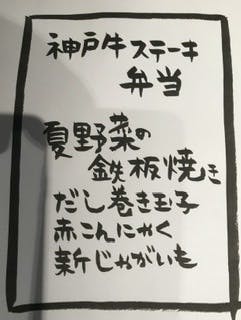 神戸牛ステーキ
弁当
夏野菜の
鉄板焼き
だし巻き玉子
赤こんにゃく
新じゃがいも